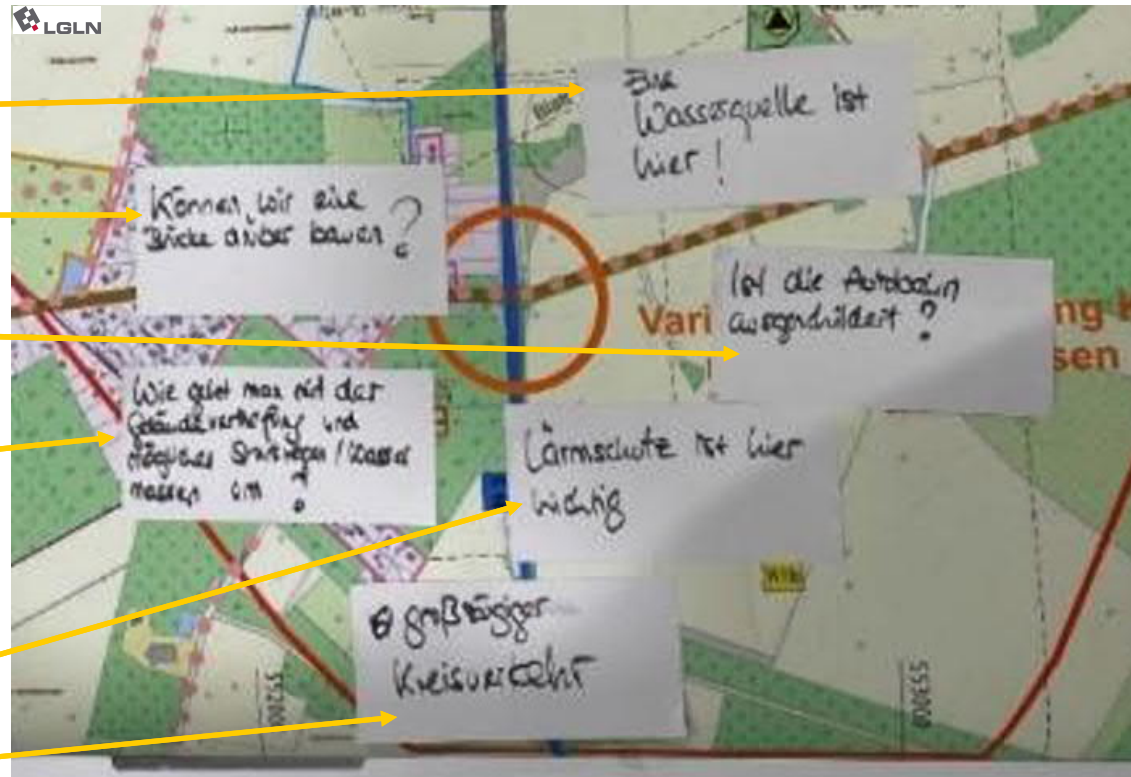 LGLN
Eine
Wasserquelle ist
hier!
Können wir eine
Brücke drüber bauen?
Ist die Autobahn
ausgeschildert?
Vari
ng K
sen
Wie geht man mit der
Geländevertiefung und
Starkregen / Wasser
massen um?
Lärmschutz ist hier
wichtig
Wibi
großzügiger
Kreisverkehr
55200
553000